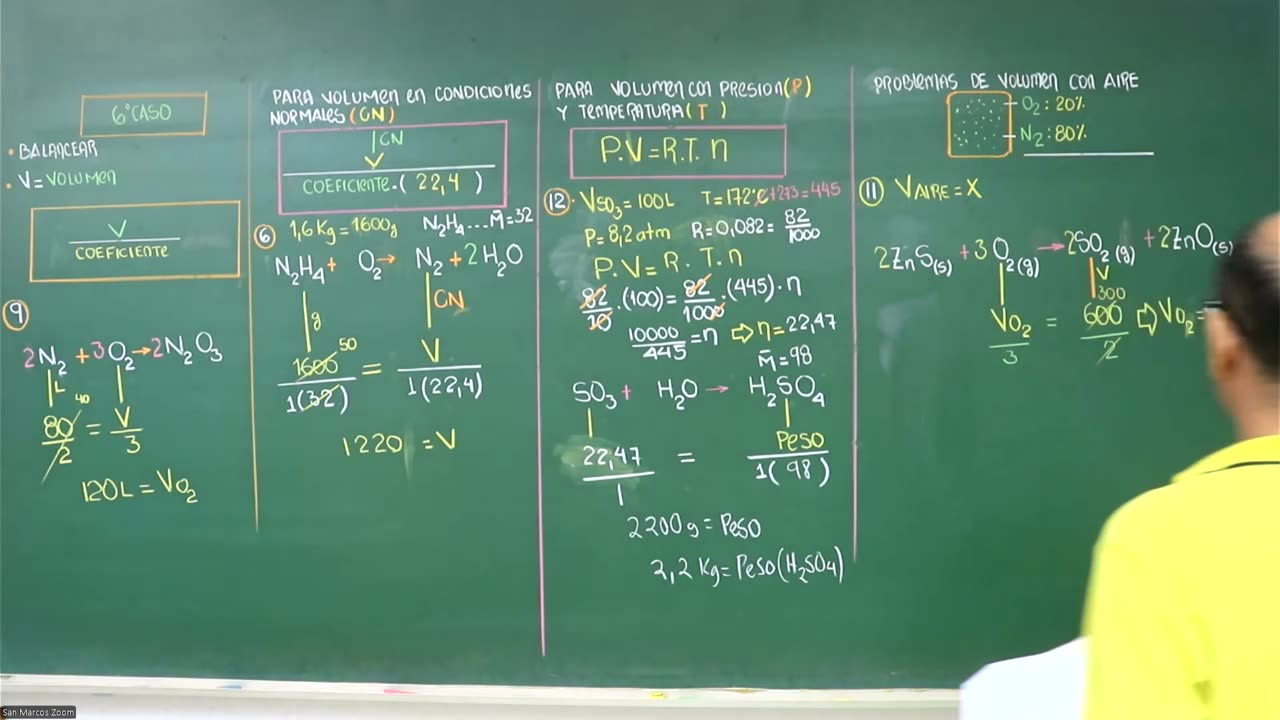 6° CASO
• BALANCEAR
• V = VOLUMEN
V
COEFICIENTE
9
2N₂ + 3O₂ → 2N₂O₃
L
40
80/2 = V/3
120L = VO₂
PARA VOLUMEN EN CONDICIONES
NORMALES (CN)
CN
V
COEFICIENTE.( 22,4 )
6
1,6 Kg = 1600g N₂H₄...M̄=32
N₂H₄ + O₂ → N₂ + 2H₂O
g CN
50
1600/1(32) = V/1(22,4)
1220 = V
PARA VOLUMEN CON PRESION (P)
Y TEMPERATURA (T)
P.V = R.T. n
12 · VSO₃ = 100L T = 172°C + 273 = 445
P = 8,2 atm R = 0,082 = 82/1000
P.V = R.T.n
82/10 .(100) = 82/1000 .(445).n
10000/445 = n ⇨ n = 22,47
M̄ = 98
SO₃ + H₂O → H₂SO₄
22,47/1 = Peso/1(98)
2200g = Peso
2,2 Kg = Peso(H₂SO₄)
PROBLEMAS DE VOLUMEN CON AIRE
O₂ : 20%
N₂ : 80%
11 VAIRE = X
2ZnS(s) + 3O₂(g) → 2SO₂(g) + 2ZnO(s)
V
300
VO₂/3 = 600/2 ⇨ VO₂ =
San Marcos Zoom